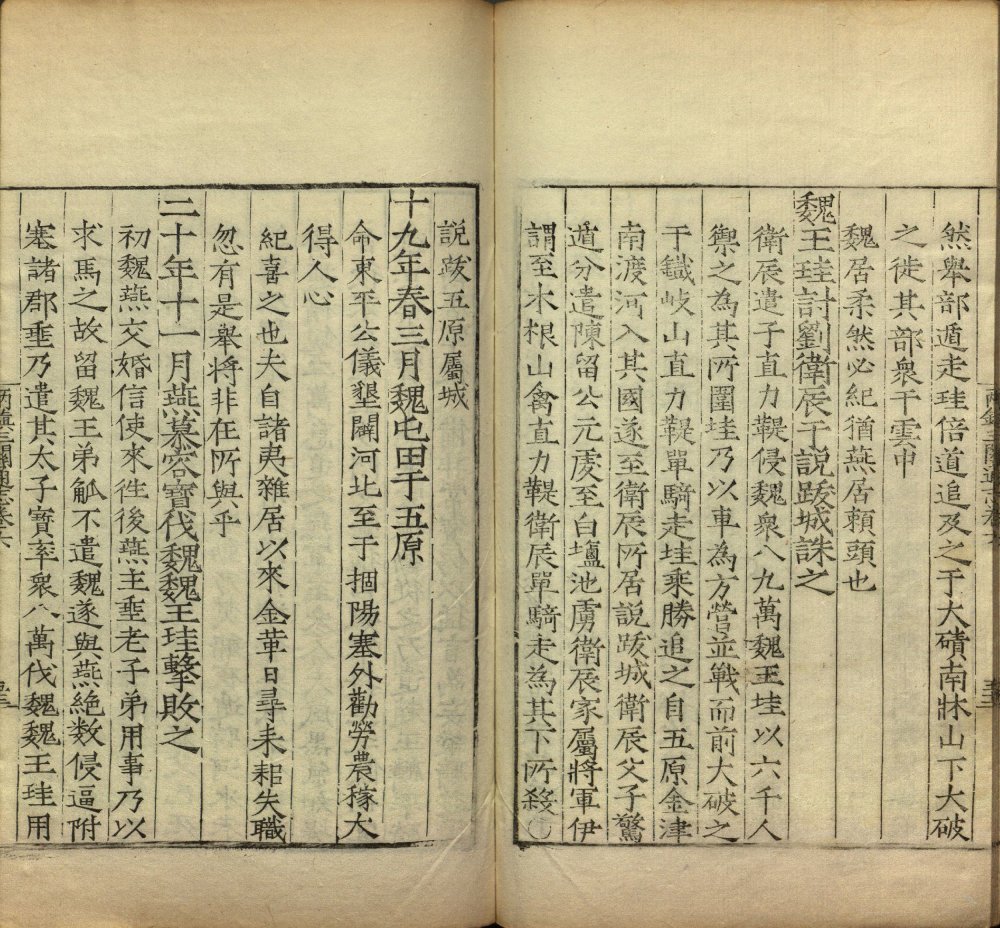 然舉部遁走珪倍道追及之于大磧南牀山下大破
之徙其部衆于雲中
魏居柔然必紀猶燕居賴頭也
魏王珪討劉衛辰于說跋城誅之
衛辰遣子直力鞮侵魏衆八九萬魏王珪以六千人
禦之為其所圍珪乃以車為方營並戰而前大破之
于鐵岐山直力鞮單騎走珪乘勝追之自五原金津
南渡河入其國遂至衛辰所居說跋城衛辰父子驚
遁分遣陳留公元虔至白塩池虜衛辰家屬將軍伊
謂至木根山禽直力鞮衛辰單騎走為其下所殺〇
說跋五原屬城
十九年春三月魏屯田于五原
命東平公儀墾闢河北至于棝陽塞外勸勞農稼大
得人心
紀喜之也夫自諸夷雜居以來金革日尋耒耜失職
忽有是舉將非在所與乎
二十年十一月燕慕容寶伐魏魏王珪擊敗之
初魏燕交婚信使來徃後燕主垂老子弟用事乃以
求馬之故留魏王弟觚不遣魏遂與燕絶数侵逼附
塞諸郡垂乃遣其太子寶率衆八萬伐魏魏王珪用